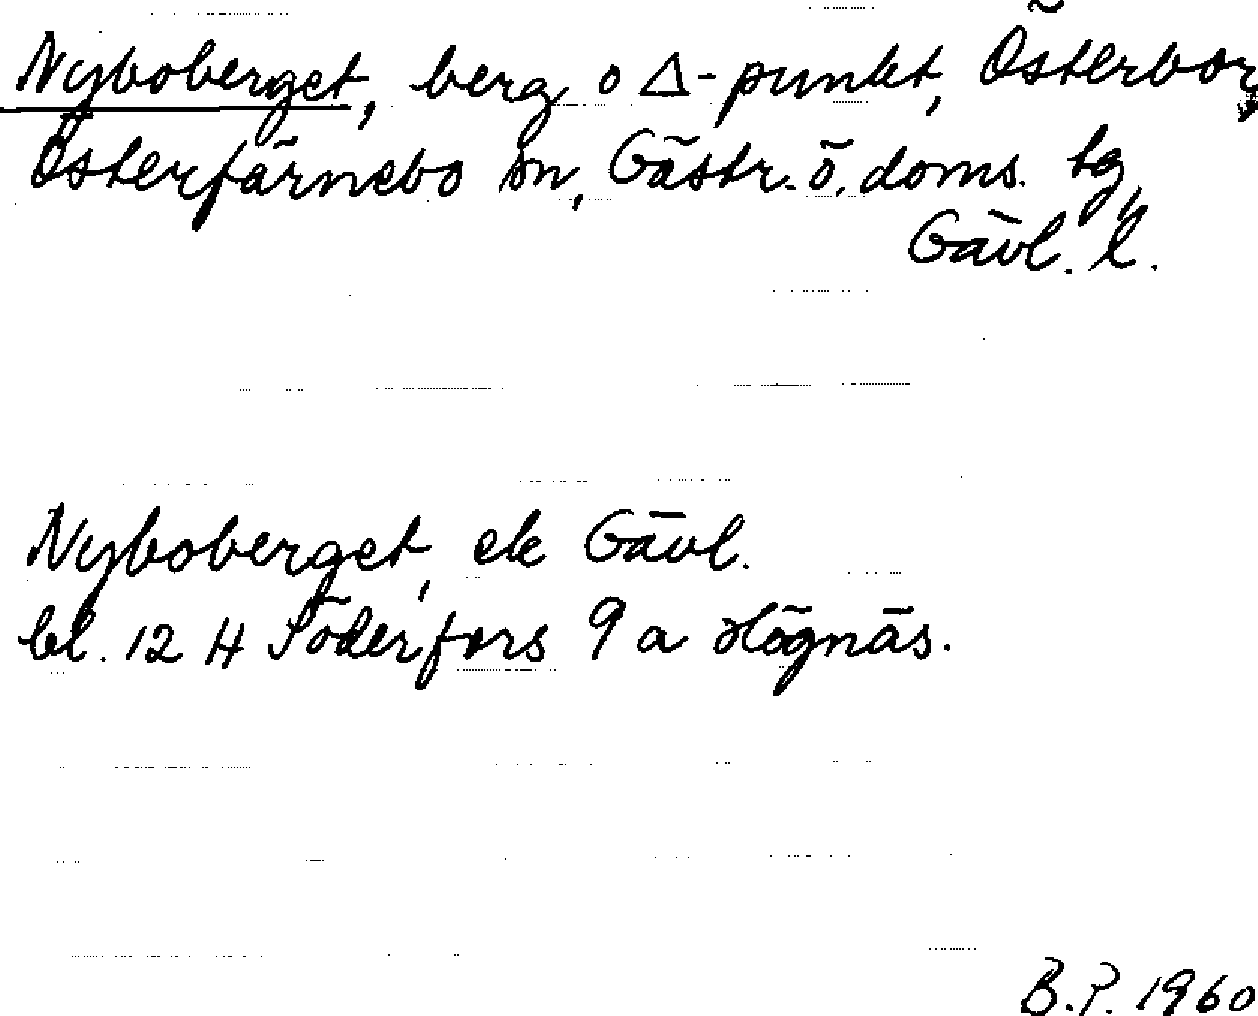 Nyboberget, berg o Δ-punkt, Österbor,
Österfärnebo sn, Gästr. ö. doms. tg,
Gävl. l.
Nyboberget, ek Gävl.
bl. 12 H Söderfors 9 a Högnäs.
B.P. 1960